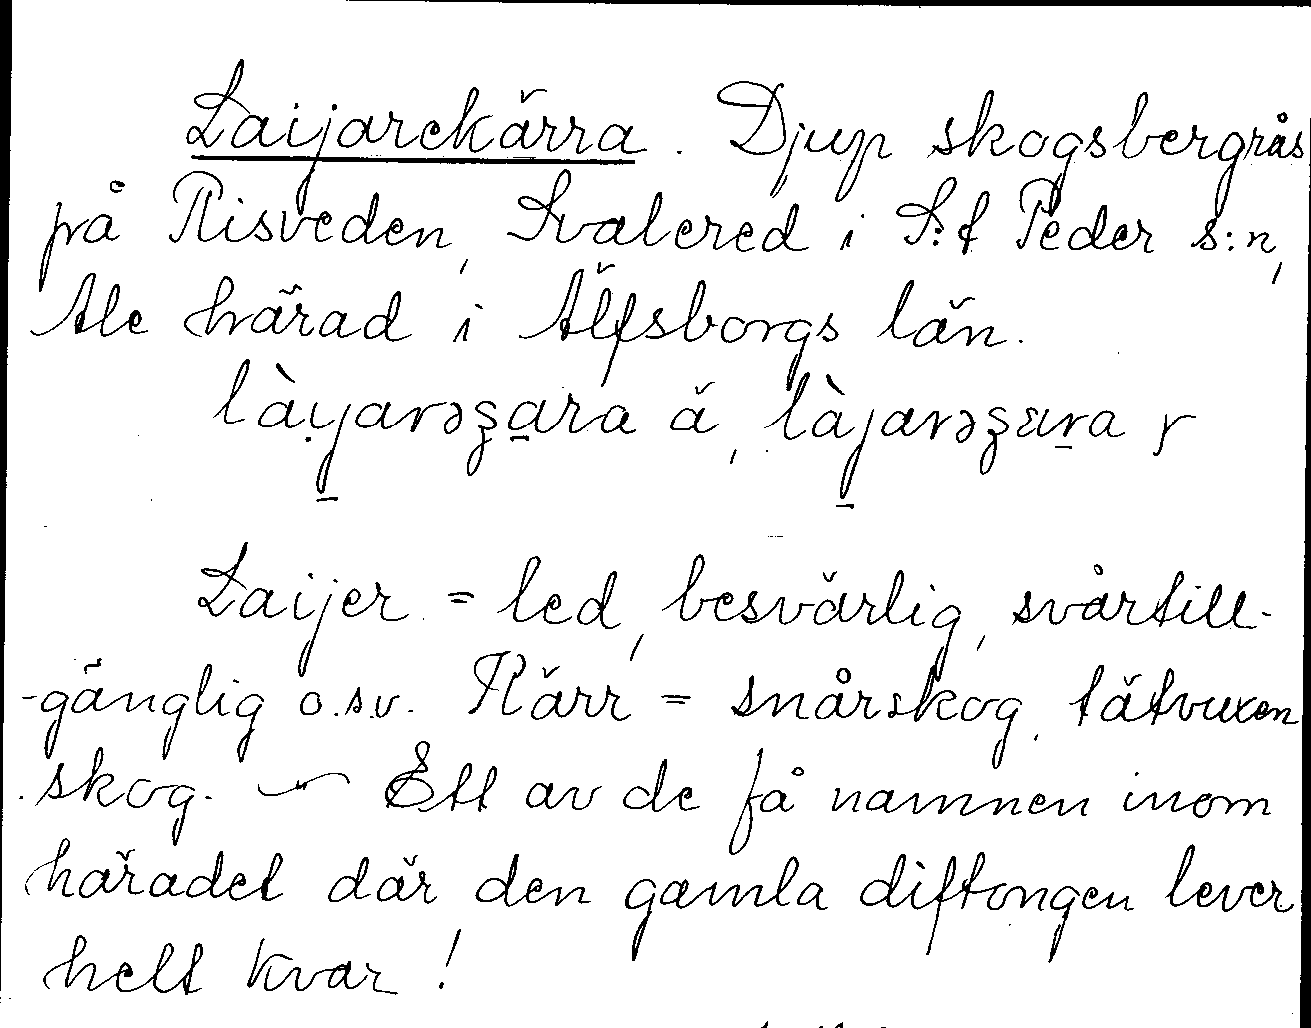 Laijarekärra. Djup skogsbergrås
på Risveden, Svalered i S:t Peder s:n,
Ale härad i Älfsborgs län.
Laijer = led, besvärlig, svårtill-
-gänglig o.s.v. Kärr = snårskog, tätvuxen
skog. — Ett av de få namnen inom
häradet där den gamla diftongen lever
helt kvar!